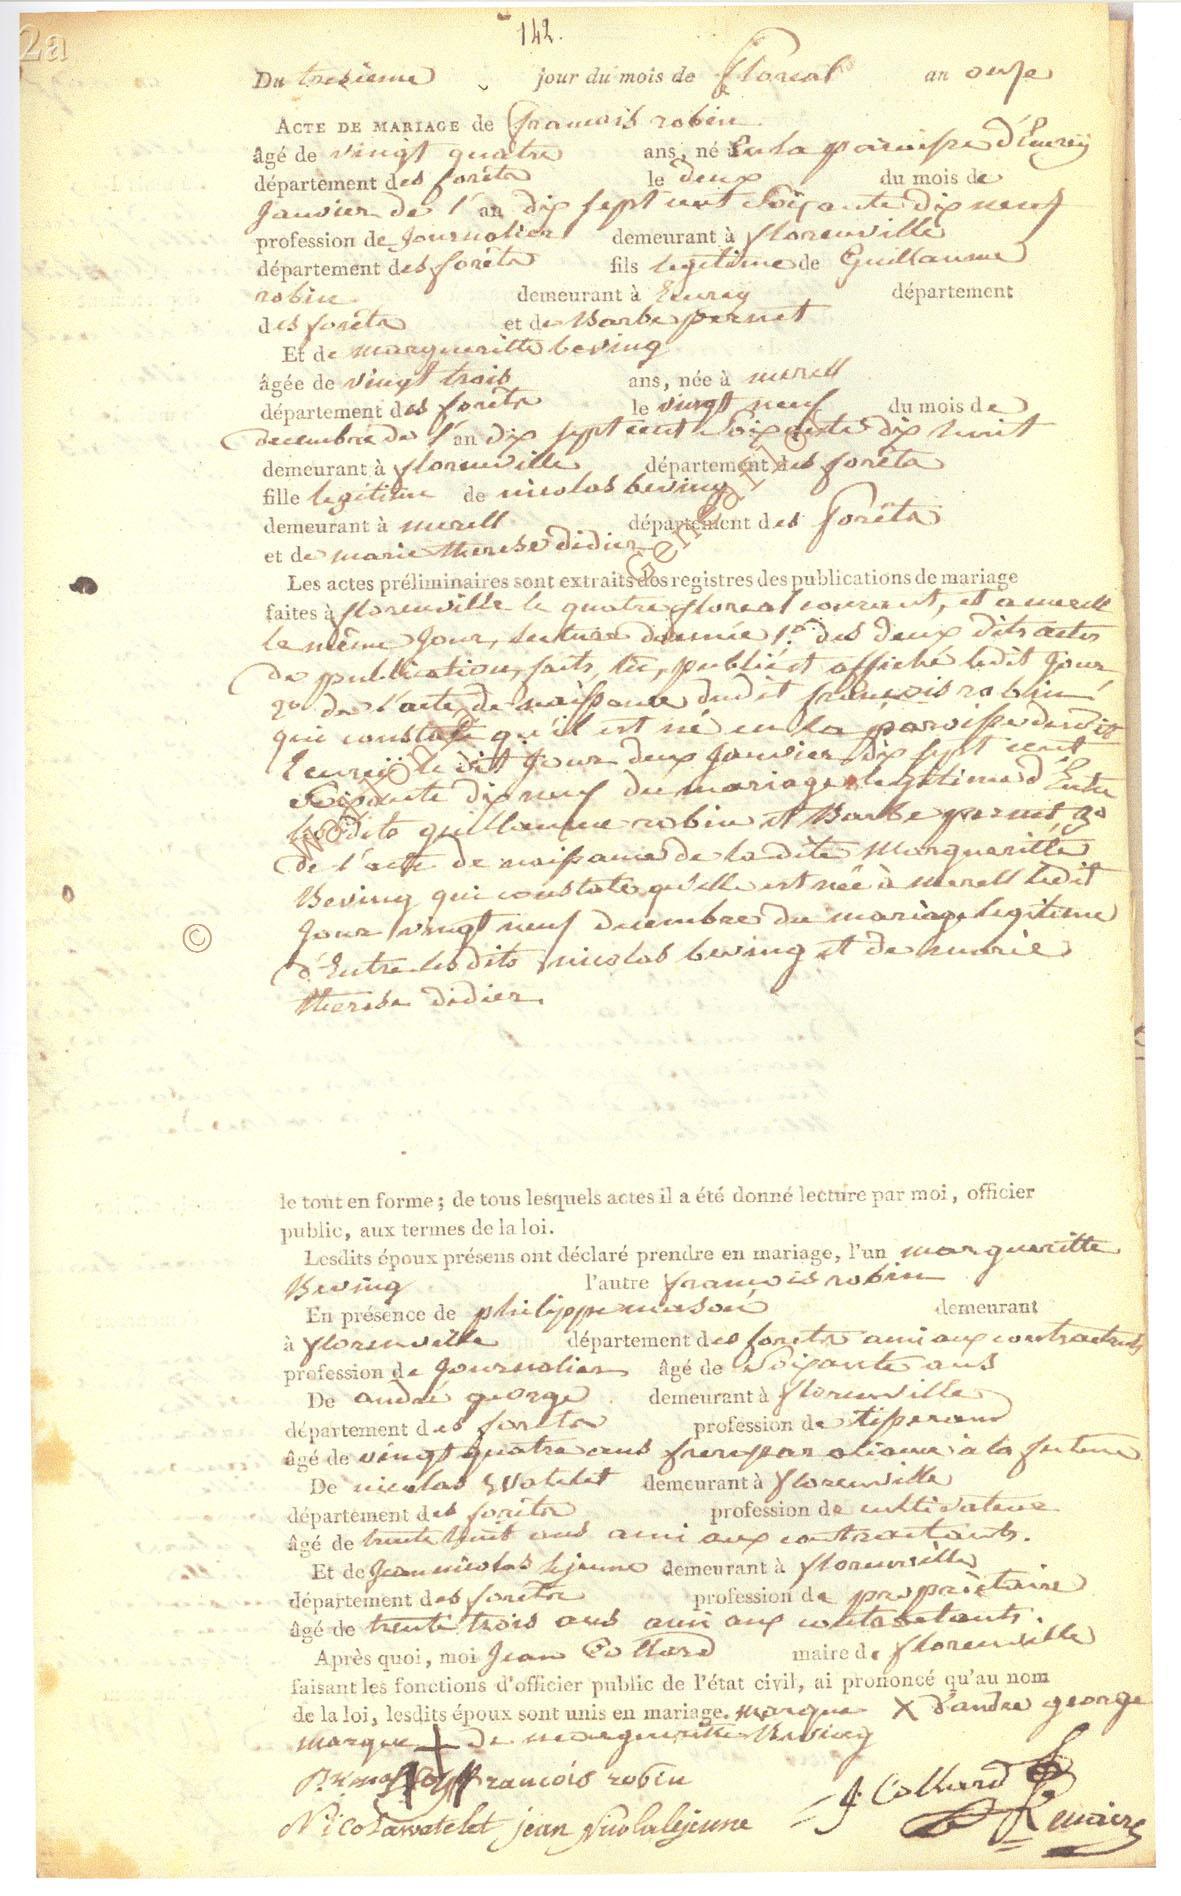 2a
142.
Du treizieme jour du mois de floreal an onze
ACTE DE MARIAGE de françois robin
âgé de vingt quatre ans, né En la paroisse d'Eurey
département des forêts le deux du mois de
Janvier de l'an dix sept cent Soixante dix neuf
profession de Journalier demeurant à florenville
département des forêts fils legitime de Guillaume
robin demeurant à Eurey département
des forêts et de Barbe pernet
Et de margueritte beving
âgée de vingt trois ans, née à merell
département des forêts le vingt neuf du mois de
decembre de l'an dix sept cent Soixante dix huit
demeurant à florenville département des forêts
fille legitime de nicolas beving
demeurant à merell département des forêts
et de marie therese didier
Les actes préliminaires sont extraits des registres des publications de mariage
faites à florenville le quatre floreal courant, et a merell
le même Jour, lecture donnée 1º. des deux dits actes
de publication, faits, lu, publié et affiché ledit Jour
2º de l'acte de naissance dudit françois robin
qui constate qu'il est né en la paroisse dudit
Eurey ledit Jour deux Janvier dix sept cent
Soixante dix neuf du mariage legitime d'Entre
lesdits guillaume robin et Barbe pernet 3º
de l'acte de naissance de la dite Margueritte
Beving qui constate qu'elle est née à merell ledit
Jour vingt neuf decembre du mariage legitime
d'Entre lesdits nicolas beving et de marie
therese didier.
©
le tout en forme ; de tous lesquels actes il a été donné lecture par moi, officier
public, aux termes de la loi.
Lesdits époux présens ont déclaré prendre en mariage, l'un margueritte
Beving l'autre françois robin
En présence de philippe masoné demeurant
à florenville département des forêts ami aux contractants
profession de Journalier âgé de Soixante ans
De andré george demeurant à florenville
département des forêts profession de tisserand
âgé de vingt quatre ans frere par aliance à la future
De nicolas Watelet demeurant à florenville
département des forêts profession de cultivateur
âgé de trente huit ans ami aux contractants.
Et de Jean nicolas lejeune demeurant à florenville
département des forêts profession de propriètaire
âgé de trente trois ans ami aux contractants.
Après quoi, moi Jean Collard maire de florenville
faisant les fonctions d'officier public de l'état civil, ai prononcé qu'au nom
de la loi, lesdits époux sont unis en mariage. marque X d'andre george
marque + de margueritte Beving
françois robin J. Collard
Nicolas watelet jean Nicolas lejeune maire